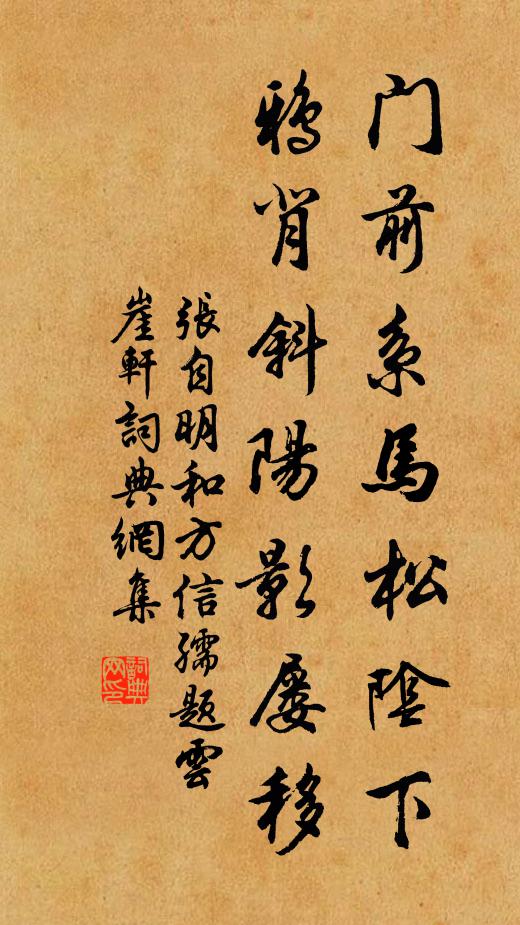 门前系馬松陰下
鴉背斜陽影屡移
張自明和方信孺題雲
崖軒詞典網集
詞典网印